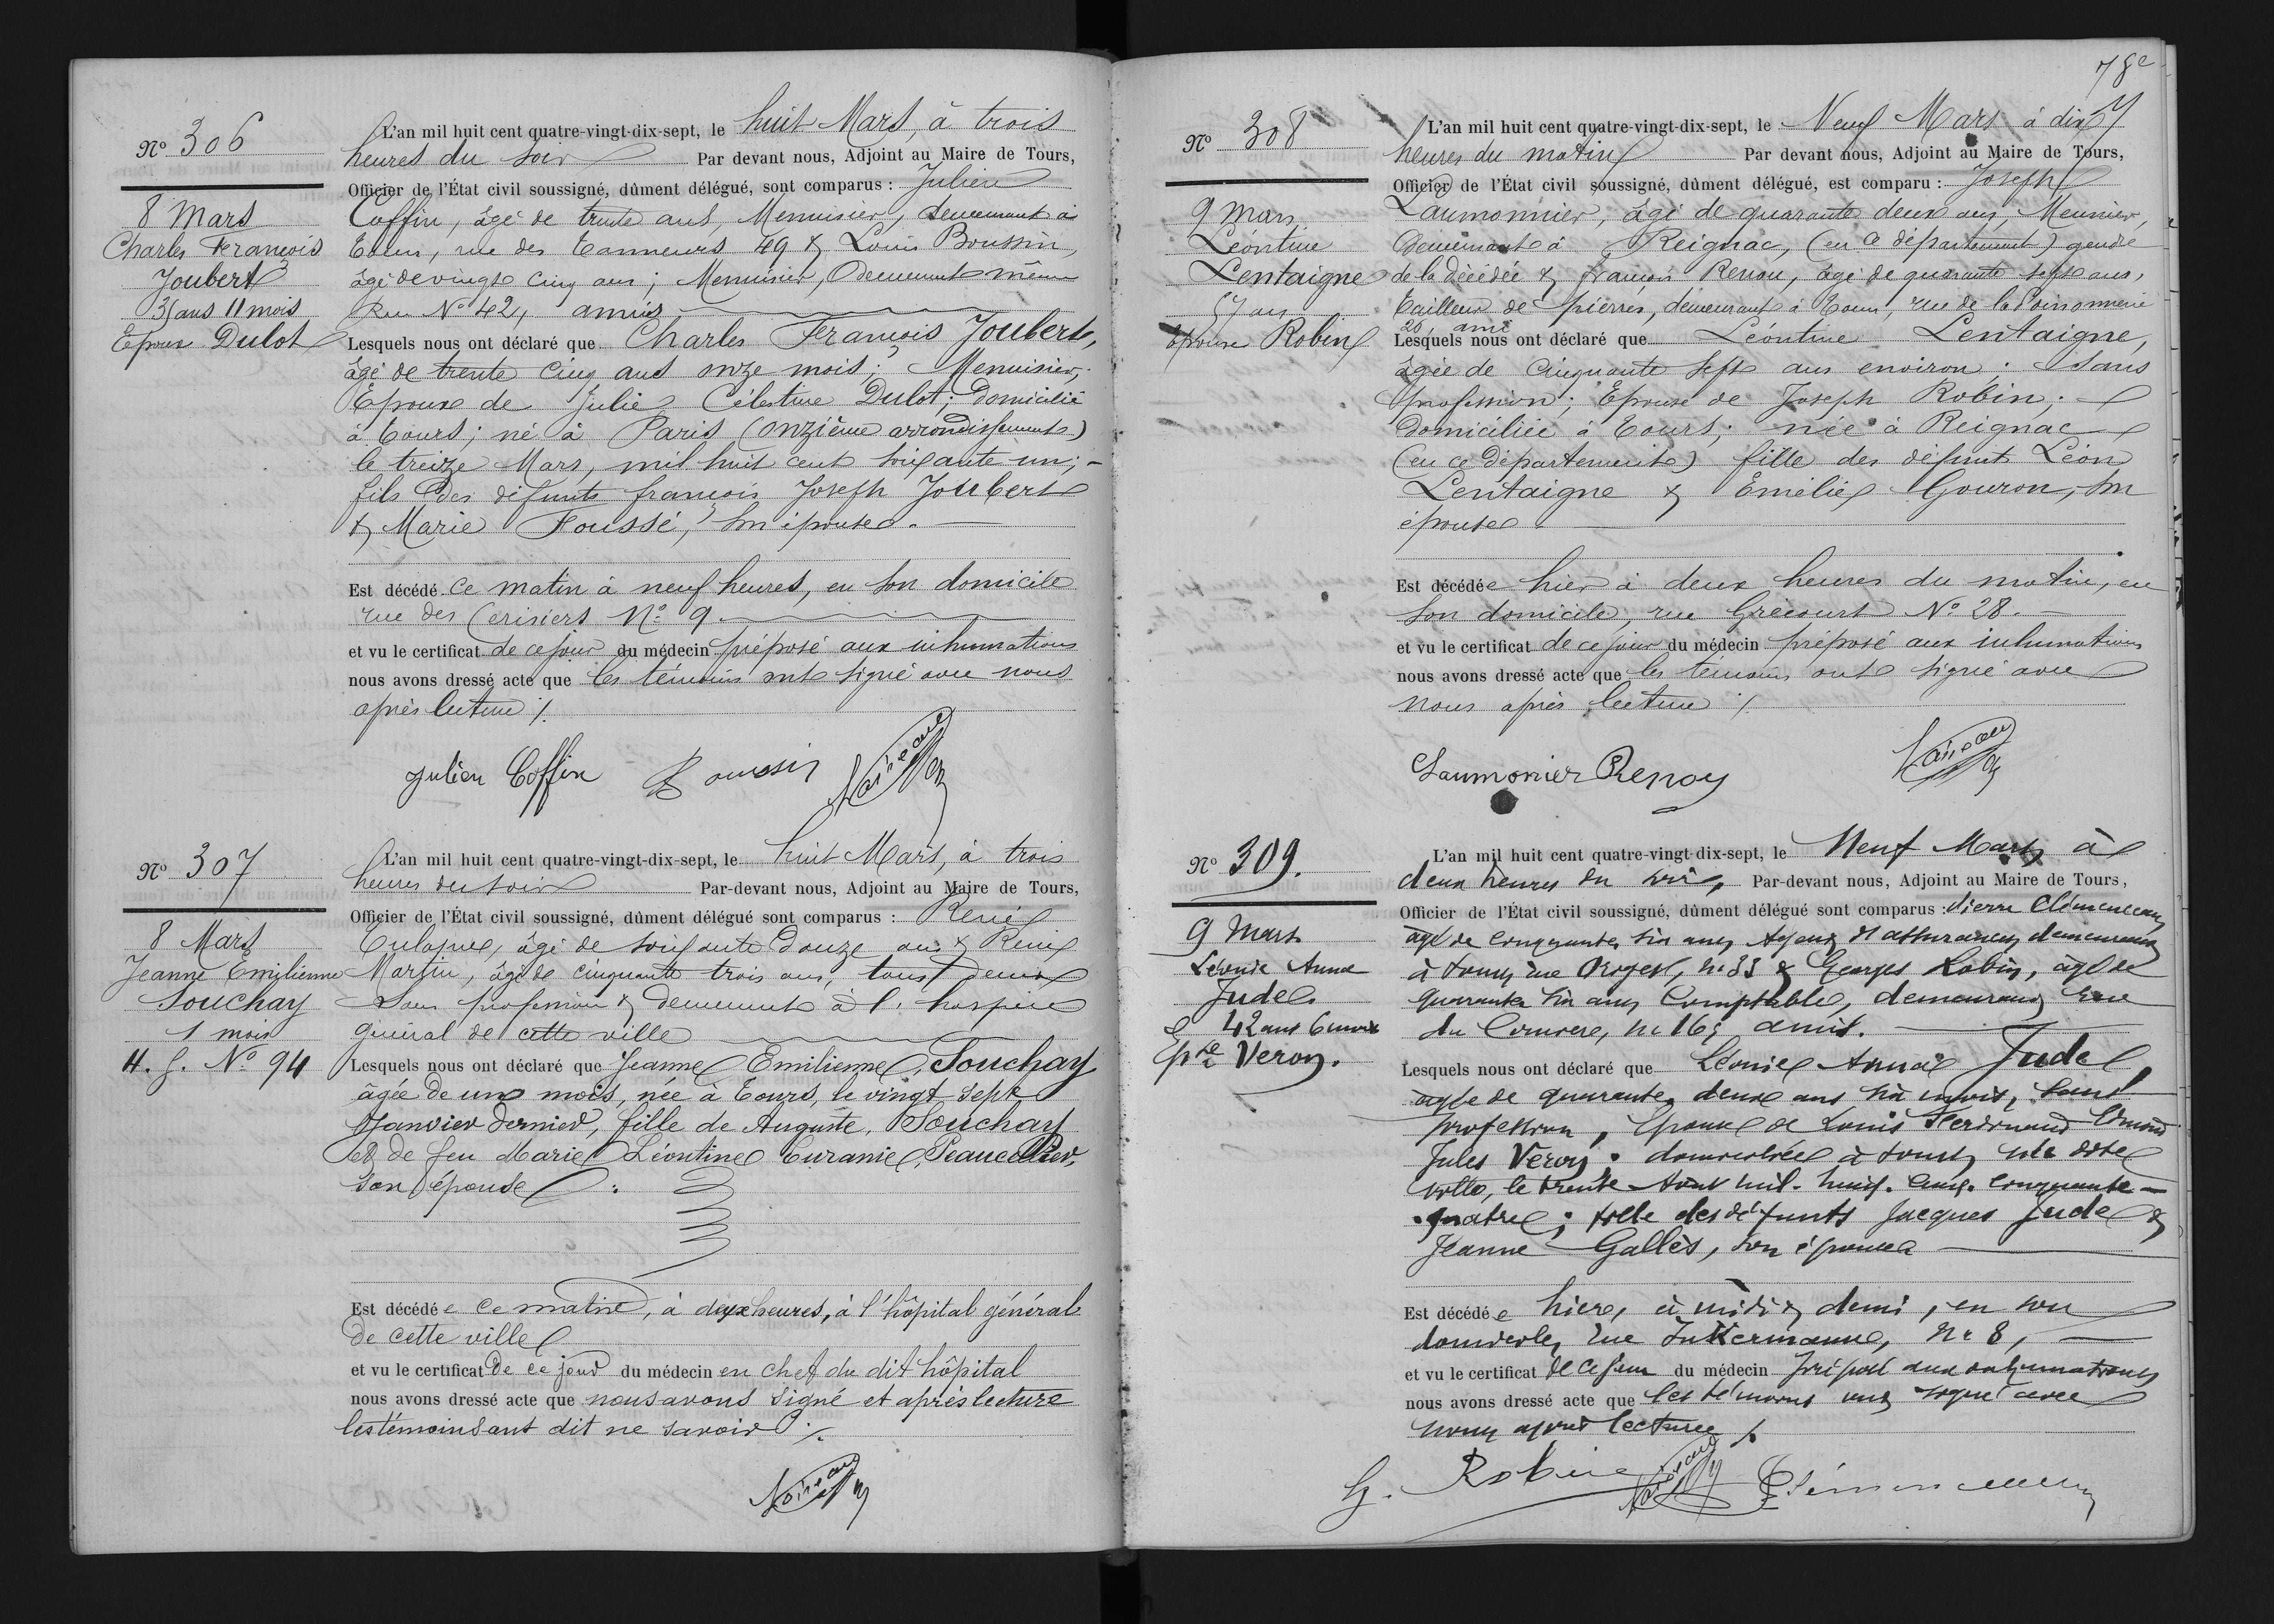 Nº 306
8 Mars
Charles François
Joubert
35 ans 11 mois
Epoux Dulot
L'an mil huit cent quatre-vingt-dix-sept, le huit Mars, à trois
heures du soir Par devant nous, Adjoint au Maire de Tours,
Officier de l'État civil soussigné, dûment délégué, sont comparus : Julien
Coffin, âgé de trente ans, Menuisier, demeurant à
Tours, rue des Tanneurs 49 & Louis Boussin,
âgé de vingt cinq ans ; Menuisier, demeurant même
Rue Nº 42, amis
Lesquels nous ont déclaré que Charles François Joubert,
âgé de trente cinq ans onze mois ; Menuisier,
Epoux de Julie Célestine Dulot ; domicilié
à Tours ; né à Paris (onzième arrondissement)
le treize Mars, mil huit cent soixante un ; -
fils des défunts françois Joseph Joubert
& Marie Foussé, son épouse.
Est décédé ce matin à neuf heures, en son domicile
rue des Cerisiers Nº 9.
et vu le certificat de ce jour du médecin préposé aux inhumations
nous avons dressé acte que les témoins ont signé avec nous
après lecture /.
Julien Coffin Boussin
Nº 307
8 Mars
Jeanne Emilienne
Souchay
1 mois
H. G. Nº 94
L'an mil huit cent quatre-vingt-dix-sept, le huit Mars, à trois
heures du soir Par-devant nous, Adjoint au Maire de Tours,
Officier de l'État civil soussigné, dûment délégué sont comparus : René
âgé de soixante douze ans & René
Martin, âgé de cinquante trois ans, tous deux
sans profession & demeurant à l'hospice
général de cette ville
Lesquels nous ont déclaré que Jeanne Emilienne, Souchay
âgée de un mois, née à Tours, le vingt sept
Janvier dernier, fille de Auguste, Souchay
et de feu Marie Léontine Euranie,
son épouse
Est décédée ce matin, à deux heures, à l'hôpital général
de cette ville
et vu le certificat de ce jour du médecin en chef du dit hôpital
nous avons dressé acte que nous avons signé et après lecture
les témoins ont dit ne savoir /.
78e
Nº 308
9 Mars
Léontine
Lentaigne
57 ans
Epouse Robin
L'an mil huit cent quatre-vingt-dix-sept, le Neuf Mars à dix
heures du matin Par devant nous, Adjoint au Maire de Tours,
Officier de l'État civil soussigné, dûment délégué, est comparu : Joseph
Laumonnier, âgé de quarante deux ans, Meunier,
demeurant à Reignac, (en ce département) gendre
de la décédée & françois Renou, âgé de quarante sept ans,
tailleur de pierres, demeurant à Tours, rue de la Poissonnerie
26, ami
Lesquels nous ont déclaré que Léontine Lentaigne,
âgée de cinquante sept ans environ ; sans
profession ; Epouse de Joseph Robin ;
domiciliée à Tours ; née à Reignac
(en ce département) fille des défunts Léon
Lentaigne & Emélie Gouron, son
épouse
Est décédée hier à deux heures du matin, en
son domicile, rue Grécourt Nº 28.
et vu le certificat de ce jour du médecin préposé aux inhumations
nous avons dressé acte que les témoins ont signé avec
nous après lecture /.
Laumonier Renou
Nº 309.
9 Mars
Léonie Anna
Jude
42 ans 6 mois
Epse Veron.
L'an mil huit cent quatre-vingt-dix-sept, le Neuf Mars à
deux heures du soir, Par-devant nous, Adjoint au Maire de Tours,
Officier de l'État civil soussigné, dûment délégué sont comparus : Pierre Clémenceau
âgé de cinquante six ans, Agent d'assurances, demeurant
à Tours, rue Origet, nº 33 & Georges Robin, âgé de
quarante six ans, Comptable, demeurant rue
du nº 16 ; amis.
Lesquels nous ont déclaré que Léonie Anna Jude
âgée de quarante deux ans six mois, sans
profession, Epouse de Louis Ferdinand Edmond
Jules Veron ; domiciliée à Tours, née dite
ville, le trente Août mil huit cent cinquante -
quatre ; fille des défunts Jacques Jude &
Jeanne Gallès, son épouse
Est décédée hier, à midi & demi, en son
domicile, rue Inkermann, nº 8,
et vu le certificat de ce jour du médecin préposé aux inhumations
nous avons dressé acte que les témoins ont signé avec
nous après lecture /.
G. Robin Clémenceau